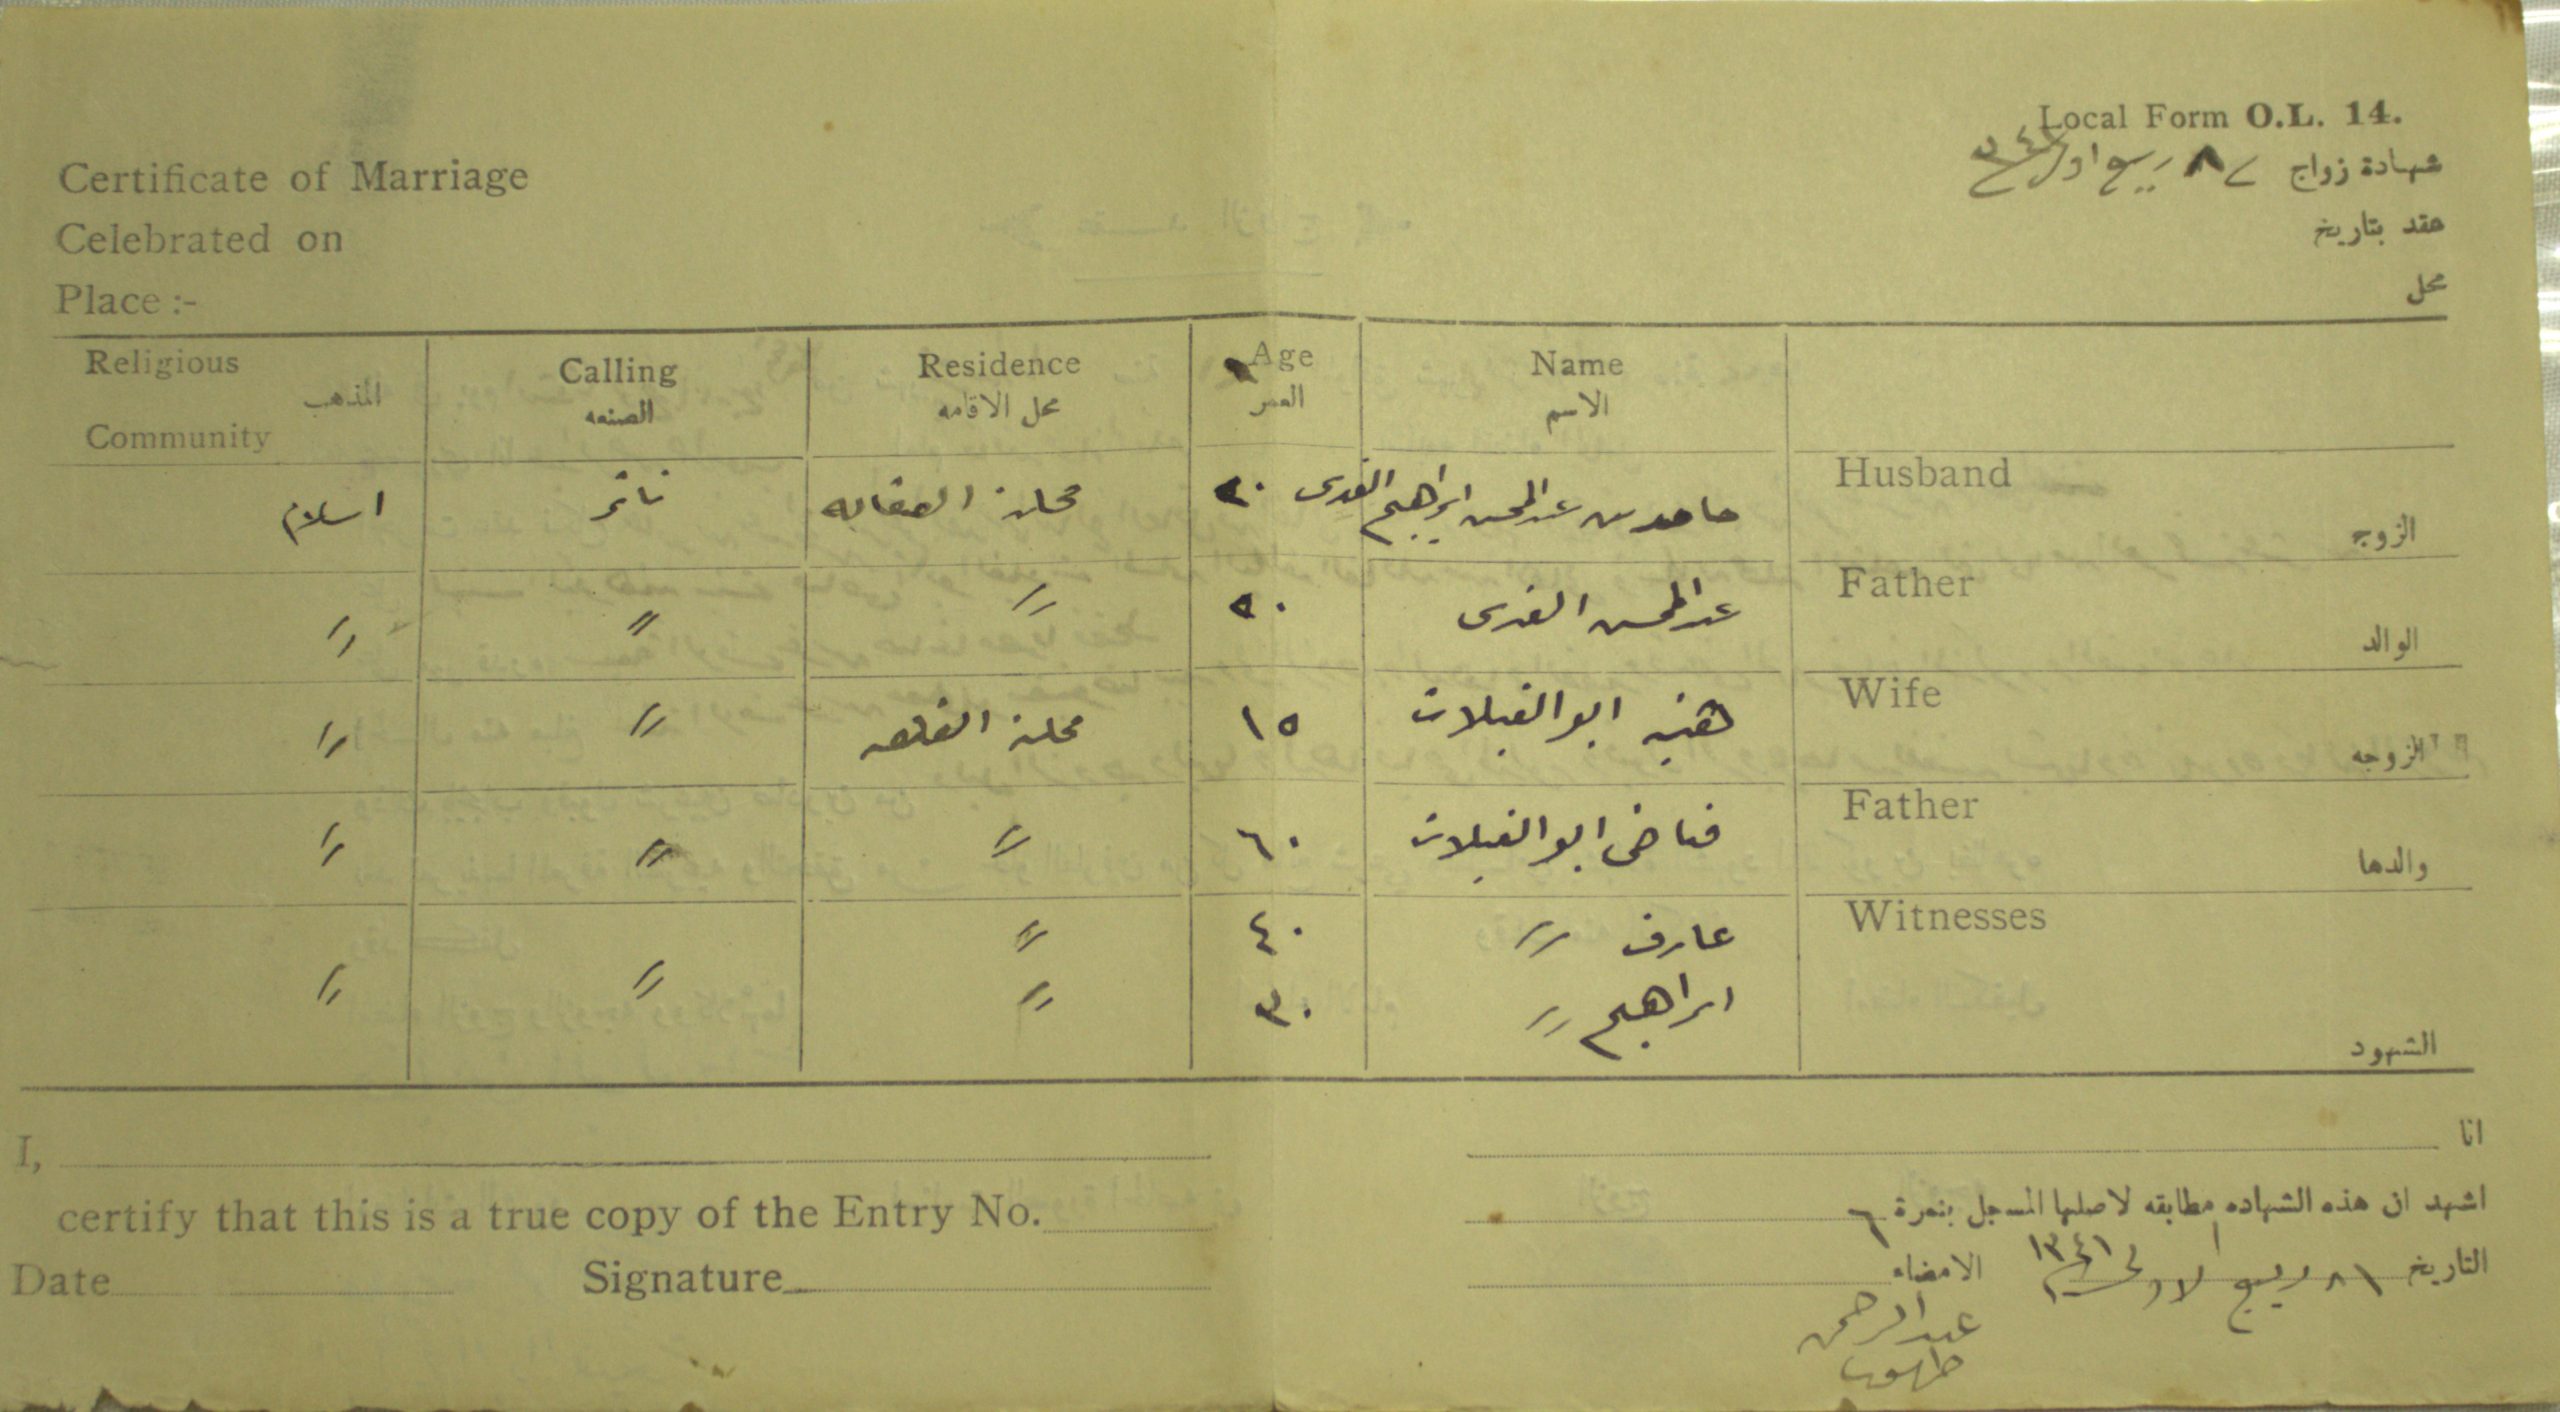 Local Form O.L. 14.
Certificate of Marriage
شهادة زواج ٨ ربيع اول
Celebrated on
عقد بتاريخ
Place :-
محل
Religious Community المذهب
Calling الصنعه
Residence محل الاقامه
Age العمر
Name الاسم
Husband الزوج
حامد بن عبد المحسن ابراهيم القدسى ٢٠ محلة العقابه اسلام
Father الوالد
عبد المحسن القدسى ٥٠ 〃 〃 〃
Wife الزوجه
هنيه ابو الغيلات ١٥ محلة القلعه 〃 〃
Father والدها
ابو الغيلات ٦٠ 〃 〃 〃
Witnesses الشهود
عارف 〃 ٤٠ 〃 〃 〃
ابراهيم 〃 ٣٠ 〃
I,
انا
certify that this is a true copy of the Entry No.
اشهد ان هذه الشهاده مطابقه لاصلها المسجل بنمرة ٦
Date Signature
التاريخ ١٨ ربيع الاول ١٣٤١ الامضاء
عبد الرحمن
طهبوب